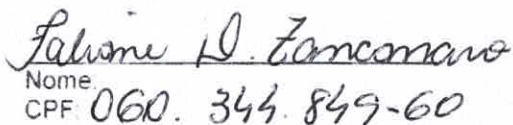 Fabiane D. Zanconaro
Nome
CPF 060. 344. 849-60